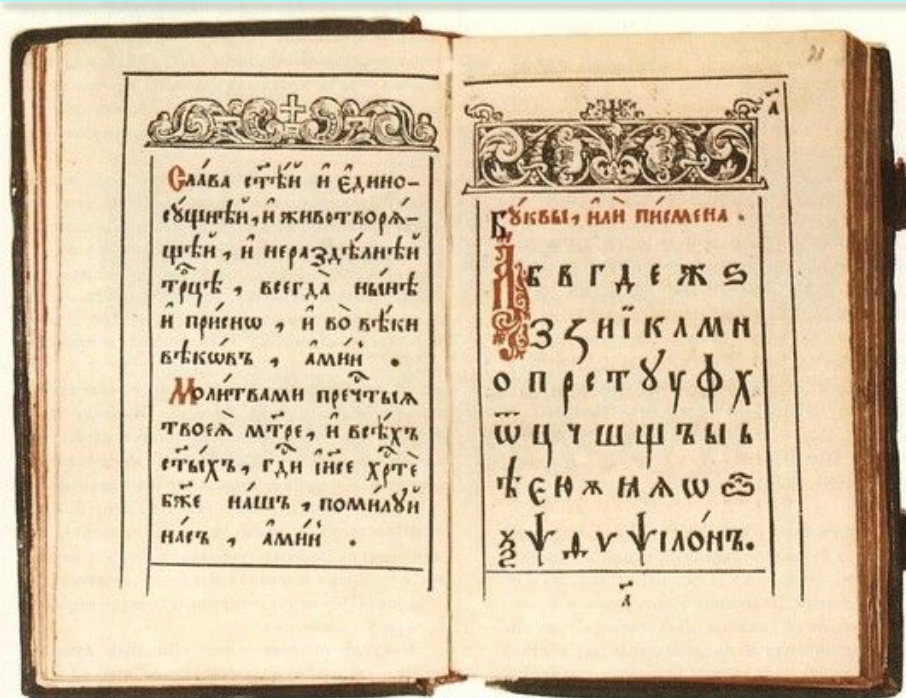 Сла́ва ст҃ѣ́й и҆ є҆дино-
сꙋ́щнѣй, и҆ животворѧ́-
щѣй, и҆ нераздѣ́лнѣй
трⷪ҇цѣ, всегда̀ ны́нѣ
и҆ при́снѡ, и҆ во̀ вѣ́ки
вѣкѡ́въ, а҆ми́нь.
Моли́твами пречⷭ҇тыѧ
твоеѧ̀ мт҃ре, и҆ всѣ́хъ
ст҃ы́хъ, гдⷭ҇и і҆и҃се хрⷭ҇тѐ
бж҃е на́шъ, поми́лꙋй
на́съ, а҆ми́нь.
21
а҃
Бꙋ́квы, и҆лѝ пи́смена.
А б в г д е ж ѕ
з ꙁ и ї к л м н
о п р с т ꙋ у ф х
ѿ ц ч ш щ ъ ы ь
ѣ є ю ж ꙗ ѧ ѡ
ѯ ѱ ѳ ѵ ѱіло́нъ.
а҃